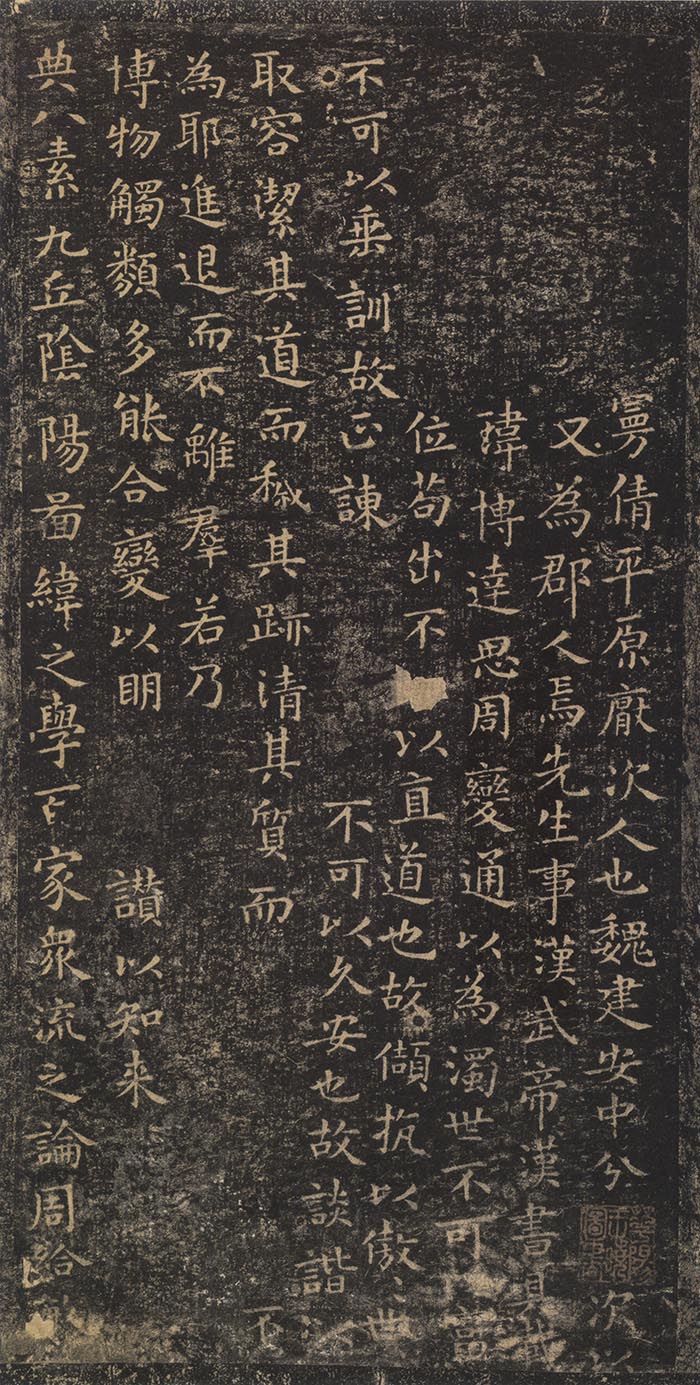 曼倩平原厭次人也魏建安中分次以
又為郡人焉先生事漢武帝漢書具載
瑋博達思周變通以為濁世不可富
位苟出不以直道也故頡抗以傲〻世
不可以垂訓故正諫不可以久安也故談諧
取容潔其道而穢其跡清其質而不
為耶進退而不離羣若乃
博物觸類多能合變以明讃以知来
典八素九丘陰陽啚緯之學百家衆流之論周給敏